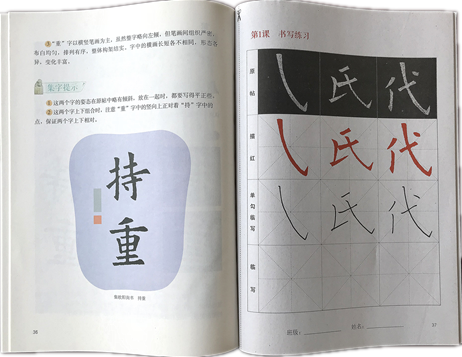 ③“重”字以横竖笔画为主，虽然整字略向左倾，但笔画间组织严密，
布白均匀，排列有序，整体构架结实，字中的横画长短各不相同，形态各
异，变化丰富。
集字提示
①这两个字的姿态在原帖中略有倾斜，放在一起时，都要写得平正些。
②这两个字上下组合时，注意“重”字中的竖向上正对着“持”字中的
点，保证两个字上下相对。
持
重
持重
36
第1课 书写练习
原帖
氏 代
描红
氏 代
单勾临写
氏 代
临写
班级：
姓名：
37